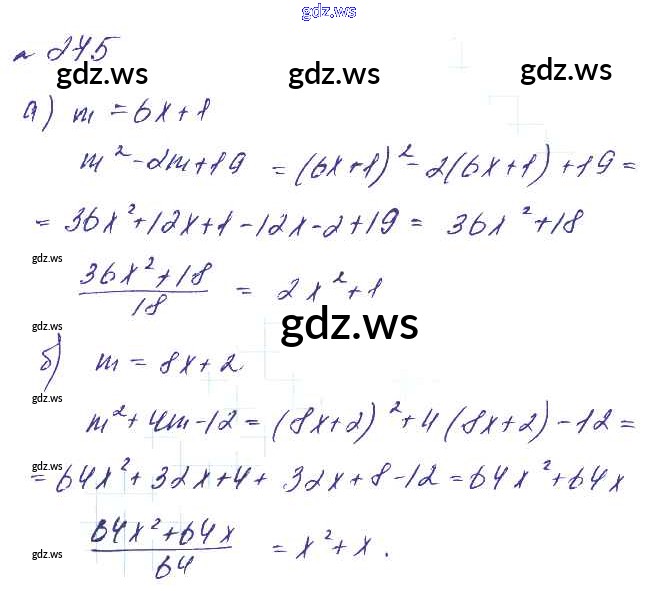 gdz.ws
№ 275
gdz.ws gdz.ws gdz.ws
а) m = 6x + 1
m² - 2m + 19 = (6x + 1)² - 2(6x + 1) + 19 =
= 36x² + 12x + 1 - 12x - 2 + 19 = 36x² + 18
gdz.ws
(36x² + 18)/18 = 2x² + 1
gdz.ws gdz.ws
б) m = 8x + 2
gdz.ws
m² + 4m - 12 = (8x + 2)² + 4(8x + 2) - 12 =
gdz.ws
= 64x² + 32x + 4 + 32x + 8 - 12 = 64x² + 64x
(64x² + 64x)/64 = x² + x.
gdz.ws